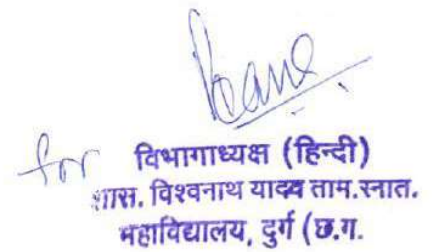 for विभागाध्यक्ष (हिन्दी)
शास. विश्वनाथ यादव ताम.स्नात.
महाविद्यालय, दुर्ग (छ.ग.